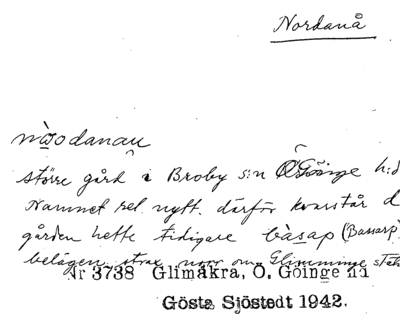 Nordanå
större gård i Broby s:n Ö Göinge h:d
Namnet rel. nytt. därför kvarstår d
gården hette tidigare bàsap (Bassarp)
belägen strax norr om Glimminge stat
Nr 3738 Glimåkra, Ö. Göinge hd
Gösta Sjöstedt 1942.